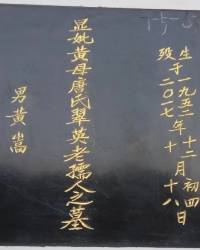 生于一九五三年十二月初四日
殁于二〇一七年十月十八日
显妣黄母唐氏翠英老孺人之墓
男黄嵩